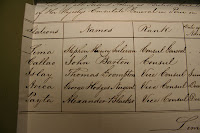 of His Majesty's Consulate General in Peru
Stations Names Rank
Lima Stephen Henry Sulivan Consul General
Callao John Barton Consul
Islay Thomas Crompton Vice Consul
Arica George Hodges Nugent Vice Consul
Payta Alexander Blacker Vice Consul